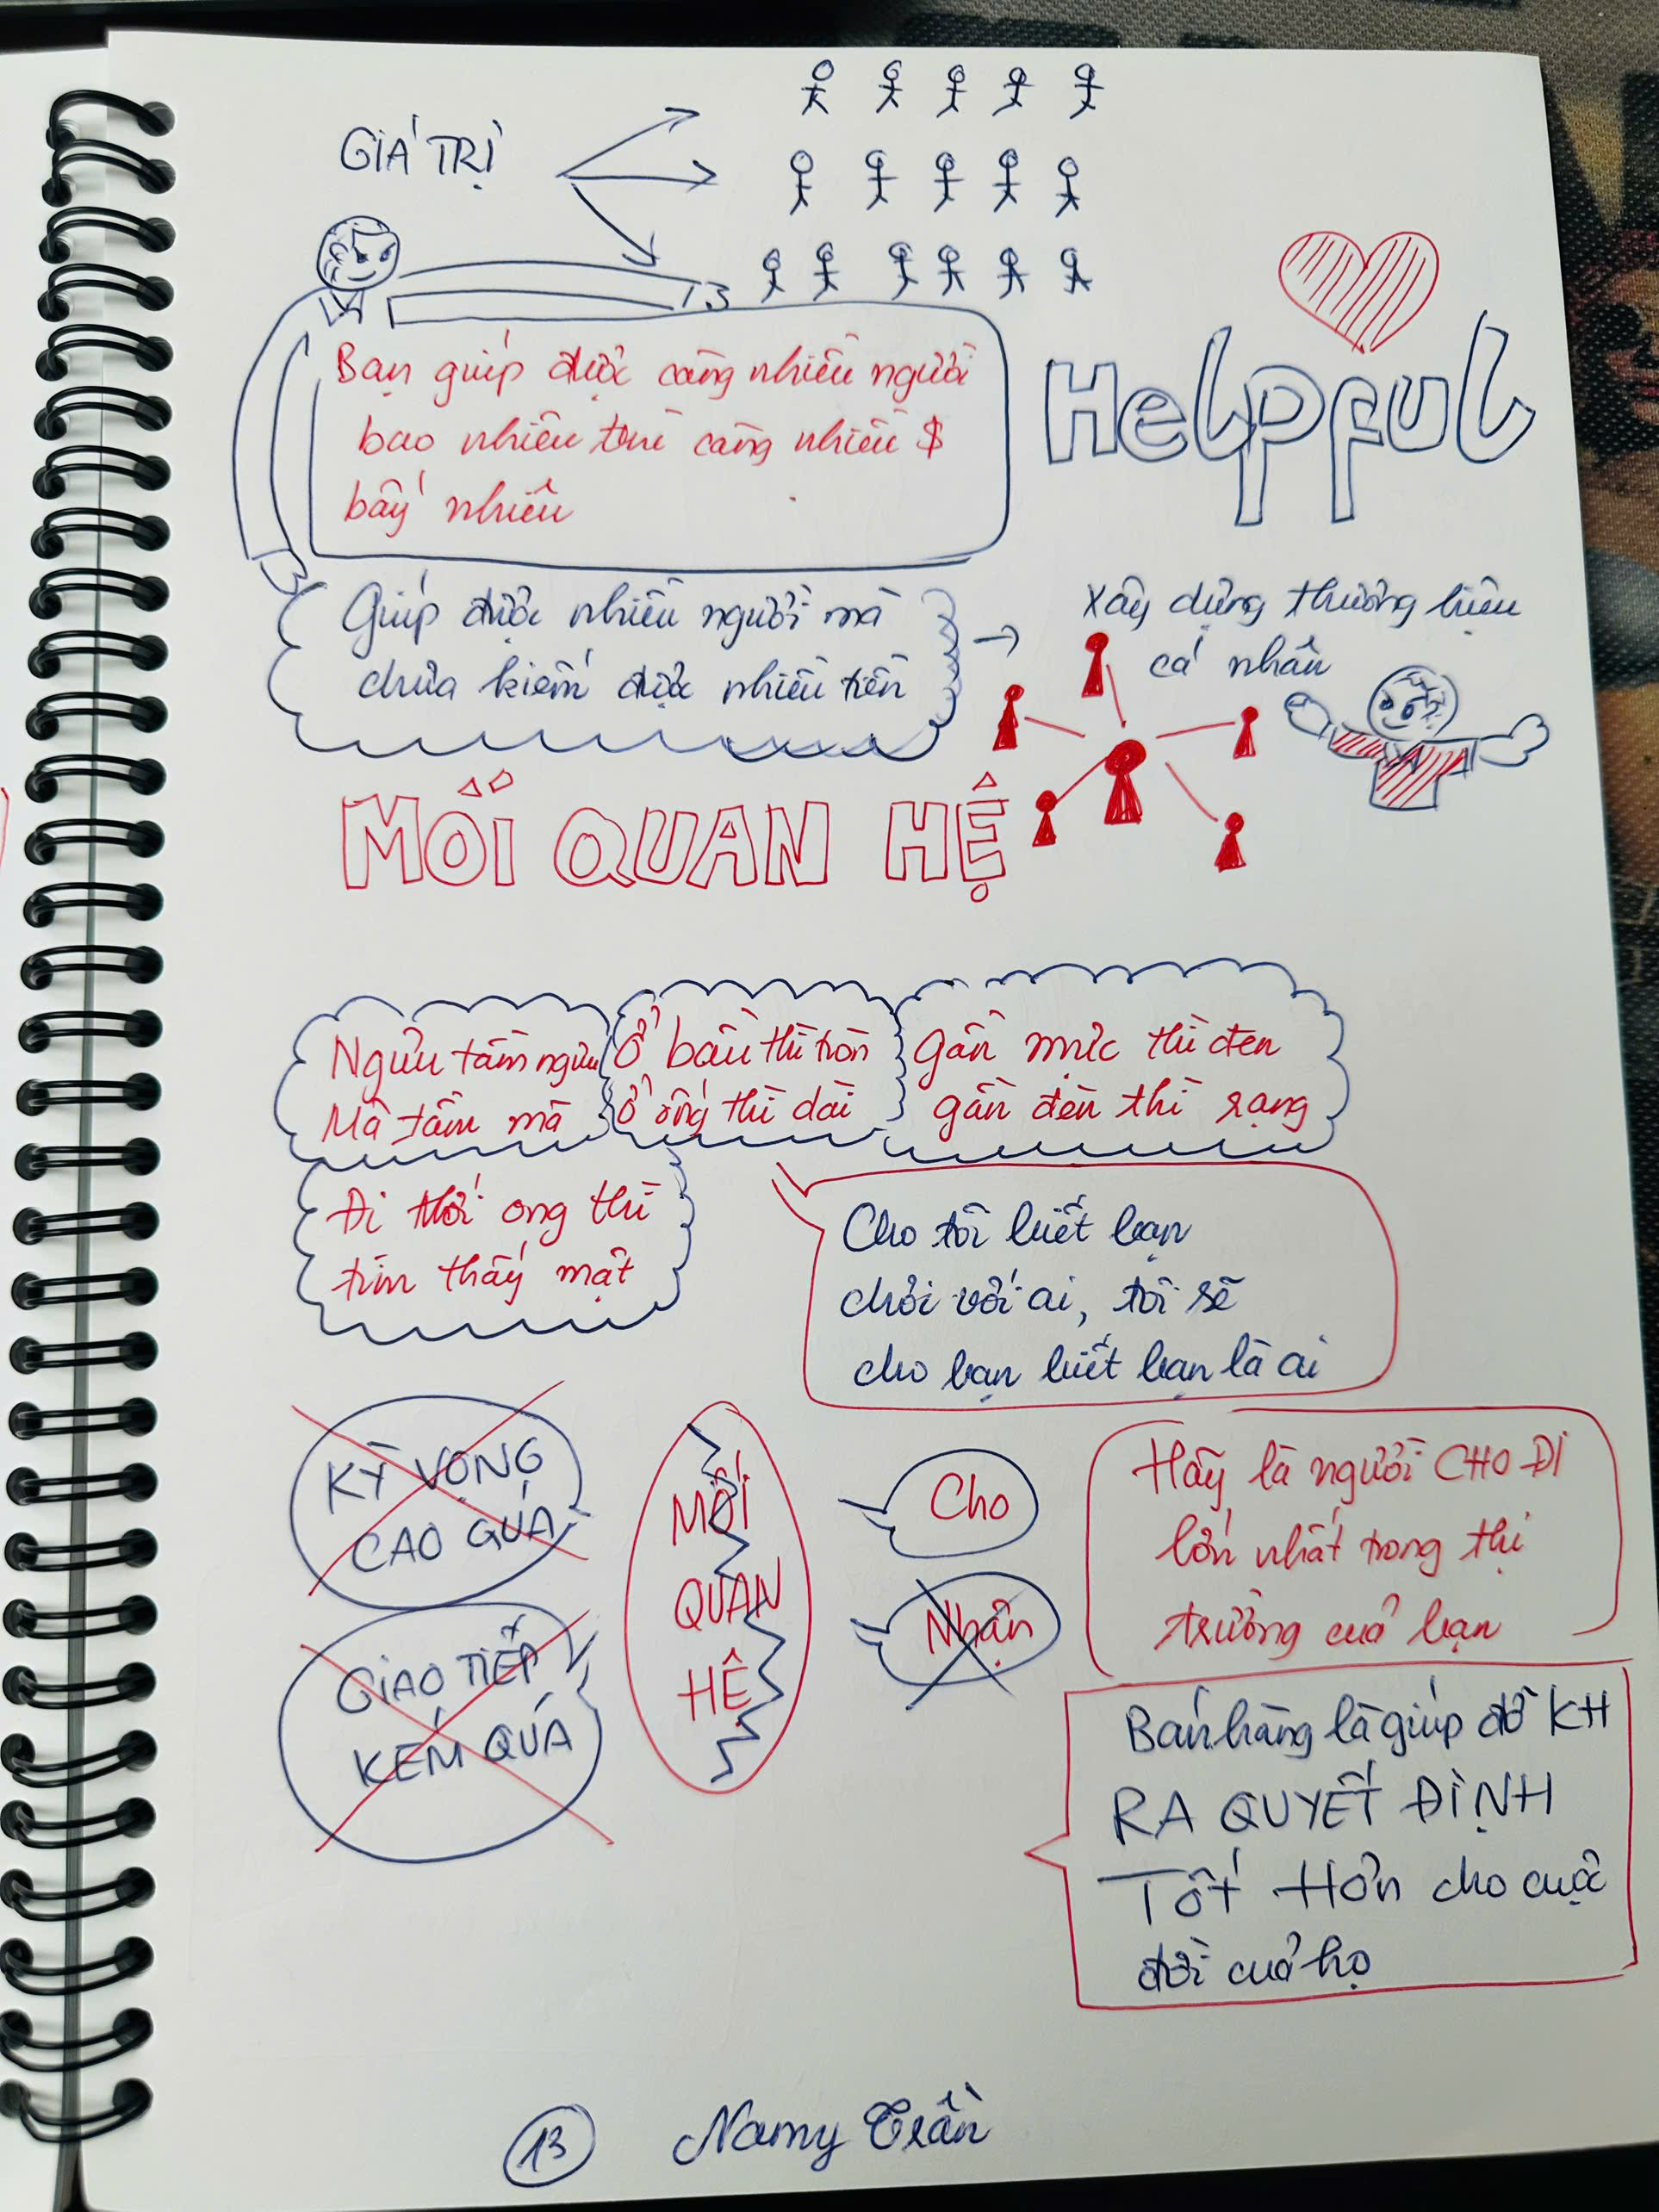 GIÁ TRỊ
Bạn giúp được càng nhiều người
bao nhiêu thì càng nhiều $
bấy nhiêu
Helpful
Giúp được nhiều người mà
chưa kiếm được nhiều tiền
Xây dựng thương hiệu
cá nhân
MỐI QUAN HỆ
Ngưu tầm ngưu
Mã tầm mã
Ở bầu thì tròn
Ở ống thì dài
Gần mực thì đen
gần đèn thì rạng
Đi theo ong thì
tìm thấy mật
Cho tôi biết bạn
chơi với ai, tôi sẽ
cho bạn biết bạn là ai
KỲ VỌNG
CAO QUÁ
GIAO TIẾP
KÉM QUÁ
MỐI
QUAN
HỆ
Cho
Nhận
Hãy là người CHO ĐI
lớn nhất trong thị
trường của bạn
Bán hàng là giúp đỡ KH
RA QUYẾT ĐỊNH
TỐT HƠN cho cuộc
đời của họ
13 Namy Trần